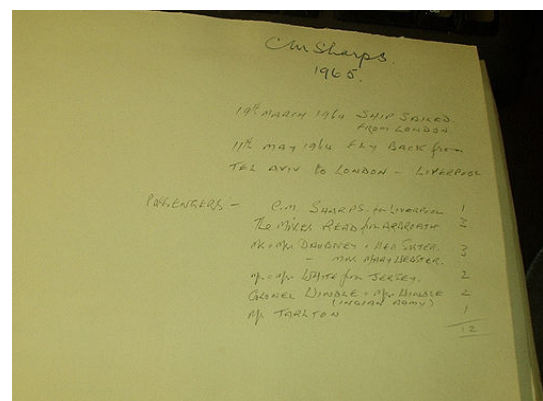 CM Sharps.
1965.
19th MARCH 1964 SHIP SAILED
FROM LONDON
11th MAY 1964 FLY BACK from
TEL AVIV to LONDON - LIVERPOOL
PASSENGERS - C.M. SHARPS. for LIVERPOOL 1
The MISSES READ for ARBROATH 3
Mr & Mrs DAUBNEY & HER SISTER. 3
- MRS MARY WEBSTER.
Mr & Mrs WHITE from JERSEY. 2
COLONEL WINDLE & Mrs WINDLE 2
(INDIAN ARMY)
Mr TARLTON 1
12